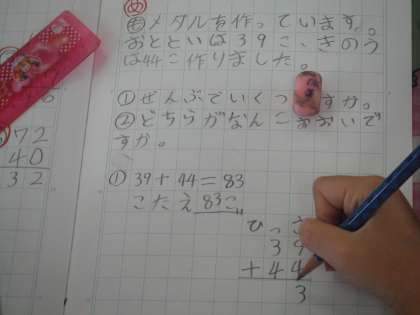 め
もメダルを作っています。
おとといは39こ、きのう
は44こ作りました。
①ぜんぶでいくつ すか。
②どちらがなんこおおいで
すか。
① 39+44=83
こたえ 83こ
ひっさ
39
+44
3
72
40
32